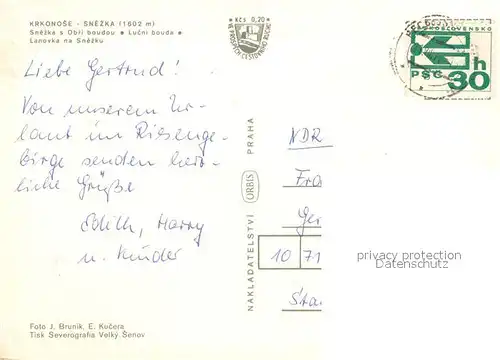 KRKONOŠE - SNĚŽKA (1602 m)
Sněžka s Obří boudou • Luční bouda •
Lanovka na Sněžku
Kčs 0,20
VE PROSPĚCH CESTOVNÍHO RUCHU
ČESKOSLOVENSKO
PSČ 30 h
Liebe Gertrud!
Von unserem Ur-
laub im Riesenge-
birge senden herz-
liche Grüße
Edith, Harry
u. Kinder
NAKLADATELSTVÍ ORBIS PRAHA
NDR
Fra
Ger
10 71
Stra
privacy protection
Datenschutz
Foto J. Brunik, E. Kučera
Tisk Severografia Velký Šenov